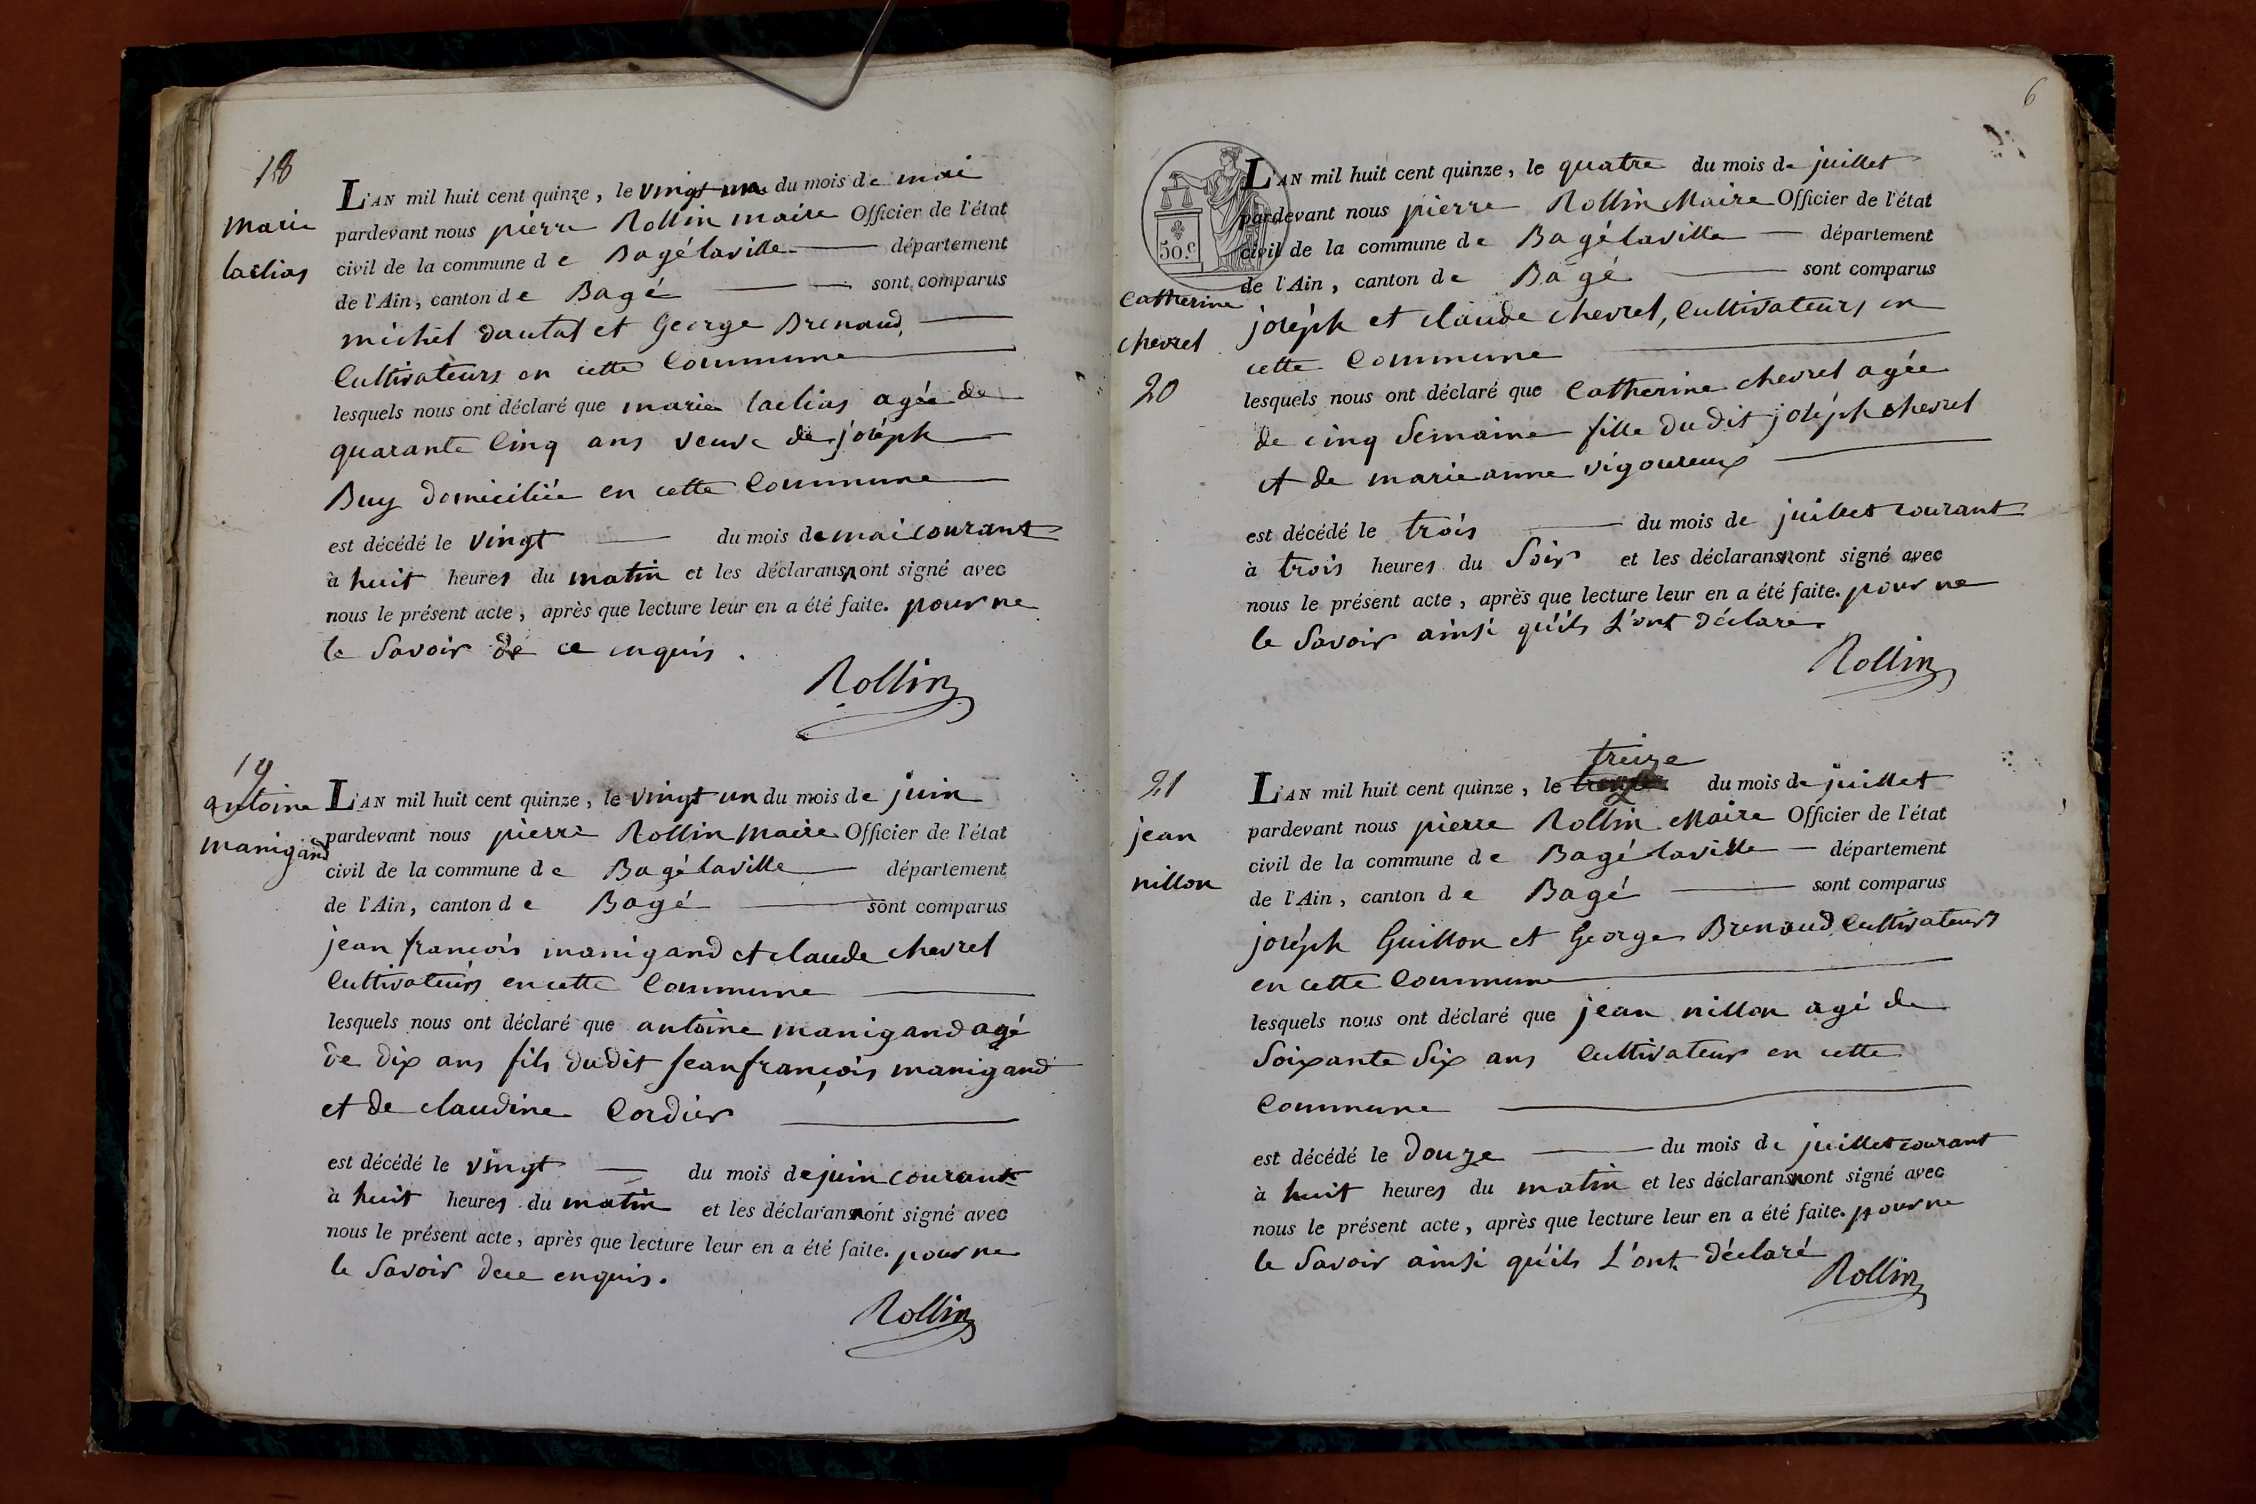 18
marie
laclias
L'AN mil huit cent quinze, le vingt un du mois de mai
pardevant nous pierre Rollin maire Officier de l'état
civil de la commune de Bagé laville département
de l'Ain, canton de Bagé sont comparus
michel dautal et George Brenaud,
Cultivateurs en cette Commune
lesquels nous ont déclaré que marie laclias agée de
quarante Cinq ans veuve de joséph
Buy domiciliée en cette Commune
est décédé le vingt du mois de mai courant
à huit heures du matin et les déclarans n ont signé avec
nous le présent acte, après que lecture leur en a été faite. pour ne
le Savoir de ce enquis.
Rollin
19
antoine
manigand
L'AN mil huit cent quinze, le vingt un du mois de juin
pardevant nous pierre Rollin maire Officier de l'état
civil de la commune de Bagé laville département
de l'Ain, canton de Bagé sont comparus
jean françois manigand et claude chevrel
Cultivateurs en cette Commune
lesquels nous ont déclaré que antoine manigand agé
de dix ans fils dudit jean françois manigand
et de claudine Cordier
est décédé le vingt du mois de juin courant
à huit heures du matin et les déclarans n ont signé avec
nous le présent acte, après que lecture leur en a été faite. pour ne
le Savoir de ce enquis.
Rollin
6
50 c
catherine
chevrel
20
L'AN mil huit cent quinze, le quatre du mois de juillet
pardevant nous pierre Rollin Maire Officier de l'état
civil de la commune de Bagé laville département
de l'Ain, canton de Bagé sont comparus
joséph et claude chevrel, Cultivateurs en
cette Commune
lesquels nous ont déclaré que Catherine chevrel agée
de cinq Semaine fille du dit joséph chevrel
et de marie anne vigoureux
est décédé le trois du mois de juillet courant
à trois heures du Soir et les déclarans n ont signé avec
nous le présent acte, après que lecture leur en a été faite. pour ne
le Savoir ainsi qu'ils L'ont déclaré.
Rollin
21
jean
nillon
treize
L'AN mil huit cent quinze, le du mois de juillet
pardevant nous pierre Rollin Maire Officier de l'état
civil de la commune de Bagé laville département
de l'Ain, canton de Bagé sont comparus
joséph Guillon et George Brenaud, Cultivateurs
en cette Commune
lesquels nous ont déclaré que jean nillon agé de
Soixante Six ans Cultivateur en cette
Commune
est décédé le douze du mois de juillet courant
à huit heures du matin et les déclarans n ont signé avec
nous le présent acte, après que lecture leur en a été faite. pour ne
le Savoir ainsi qu'ils L'ont déclaré
Rollin